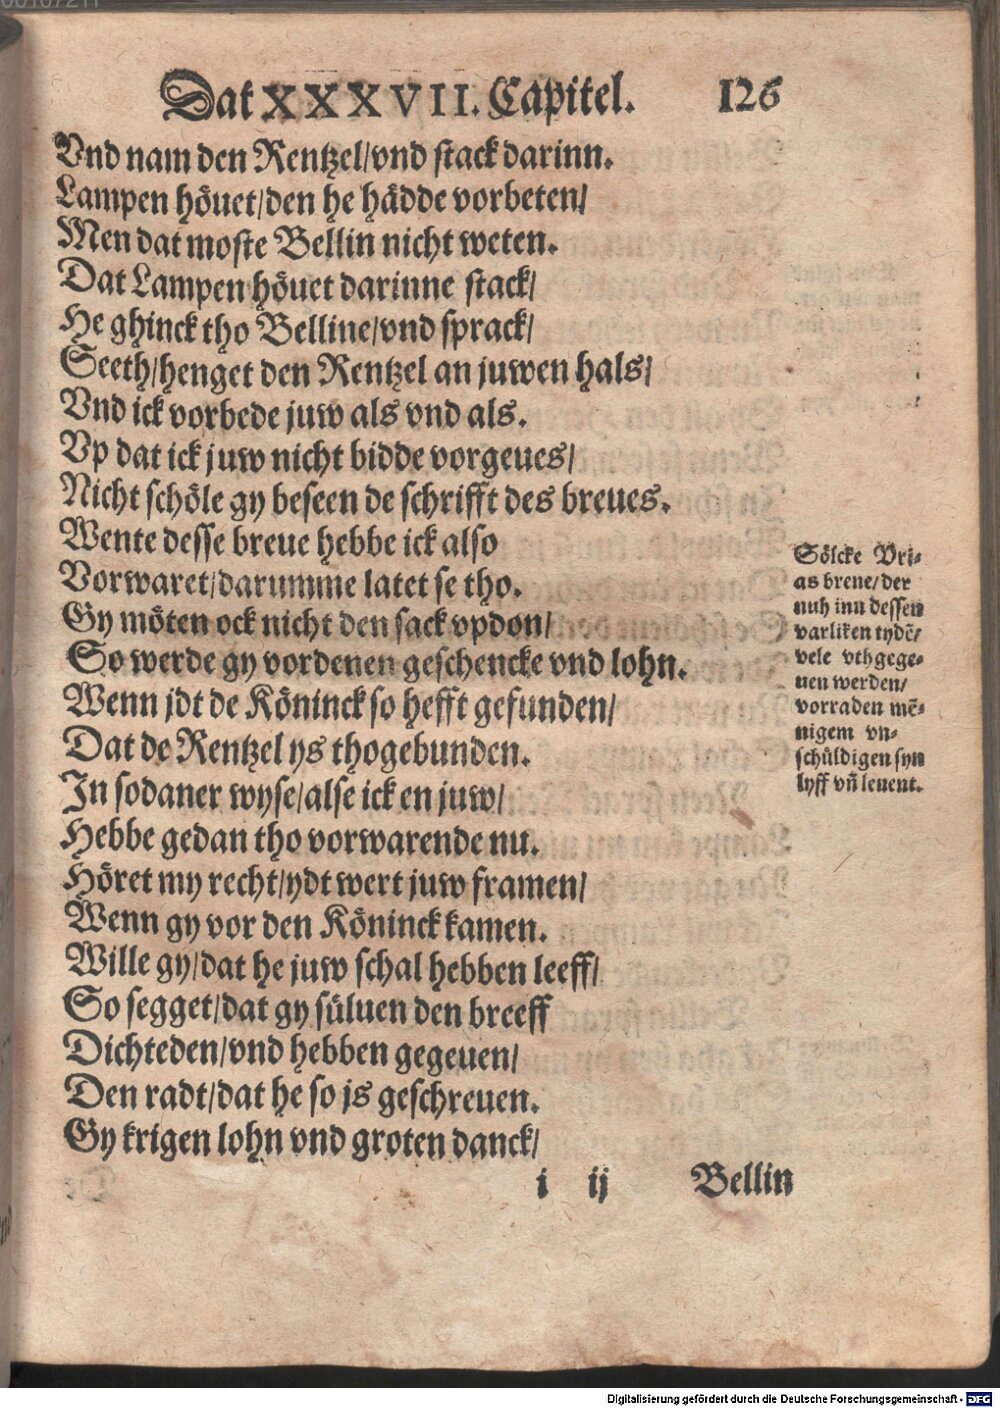 Dat XXXVII. Capitel. 126
Vnd nam den Rentzel/vnd stack darinn.
Lampen höuet/den he hädde vorbeten/
Men dat moste Bellin nicht weten.
Dat Lampen höuet darinne stack/
He ghinck tho Belline/vnd sprack/
Seeth/henget den Rentzel an juwen hals/
Vnd ick vorbede juw als vnd als.
Vp dat ick juw nicht bidde vorgeues/
Nicht schöle gy beseen de schrifft des breues.
Wente desse breue hebbe ick also
Vorwaret/darumme latet se tho.
Gy möten ock nicht den sack vpdon/
So werde gy vordenen geschencke vnd lohn.
Wenn jdt de Köninck so hefft gefunden/
Dat de Rentzel ys thogebunden.
In sodaner wyse/alse ick en juw/
Hebbe gedan tho vorwarende nu.
Höret my recht/ydt wert juw framen/
Wenn gy vor den Köninck kamen.
Wille gy/dat he juw schal hebben leeff/
So segget/dat gy süluen den breeff
Dichteden/vnd hebben gegeuen/
Den radt/dat he so js geschreuen.
Gy krigen lohn vnd groten danck/
Sölcke Vri-
as breue/der
nuh inn dessen
varliken tydē/
vele vthgege-
uen werden/
vorraden mē-
nigem vn-
schüldigen syn
lyff vñ leuent.
i ij Bellin
Digitalisierung gefördert durch die Deutsche Forschungsgemeinschaft - DFG